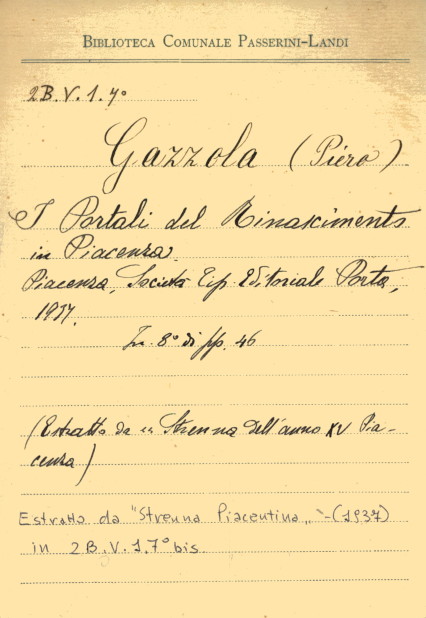 BIBLIOTECA COMUNALE PASSERINI-LANDI
2B.V.1.7º
Gazzola (Piero)
I Portali del Rinascimento
in Piacenza.
Piacenza, Società Tip. Editoriale Porta,
1937.
In 8º di pp. 46
(Estratto da „ Strenna dell'anno XV Pia-
cenza)
Estratto da "Strenna Piacentina„ -(1937)
in 2B.V.1.7º bis.